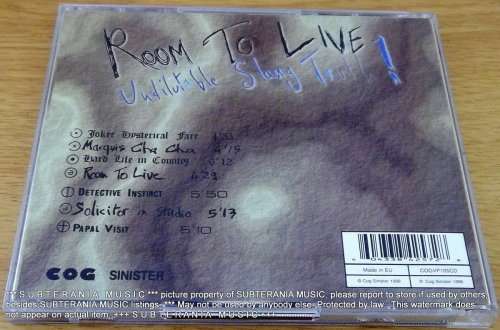 ROOM TO LIVE
Undilutable Slang Truth!
Joker Hysterical Face 4:53
Marquis Cha Cha 4'15
Hard Life in Country 6'12
Room To Live 4'23
DETECTIVE INSTINCT 5'50
Solicitor in Studio 5'13
PAPAL VISIT 5'10
Made in EU
COGVP105CD
© Cog Sinister 1998
℗ Cog Sinister 1998
COG SINISTER
*** S U B T E R A N I A M U S I C *** picture property of SUBTERANIA MUSIC, please report to store if used by others
besides SUBTERANIA MUSIC listings. *** May not be used by anybody else. Protected by law . This watermark does
not appear on actual item. *** S U B T E R A N I A M U S I C ***